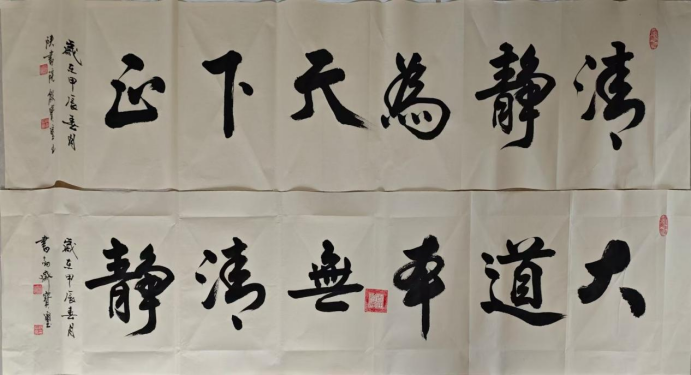 清靜為天下正
歲在甲辰春月
大道本無清靜
歲在甲辰春月